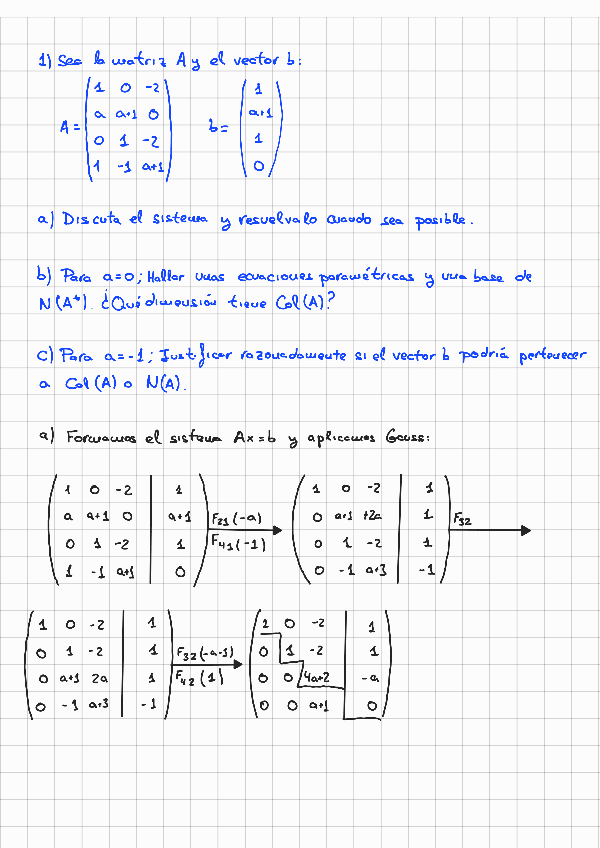 1) Sea la matriz A y el vector b:
1 0 -2 1
a a+1 0 a+1
A = b =
0 1 -2 1
1 -1 a+1 0
a) Discuta el sistema y resuelvalo cuando sea posible.
b) Para a=0; Hallar unas ecuaciones paramétricas y una base de
N(A*). ¿Qué dimensión tiene Col(A)?
c) Para a=-1; Justificar razonadamente si el vector b podría pertenecer
a Col(A) o N(A).
a) Formamos el sistema Ax=b y aplicamos Gauss:
1 0 -2 1 1 0 -2 1
a a+1 0 a+1 F21(-a) 0 a+1 +2a 1 F32
0 1 -2 1 F41(-1) 0 1 -2 1
1 -1 a+1 0 0 -1 a+3 -1
1 0 -2 1 1 0 -2 1
0 1 -2 1 F32(-a-1) 0 1 -2 1
0 a+1 2a 1 F42(1) 0 0 4a+2 -a
0 -1 a+3 -1 0 0 a+1 0